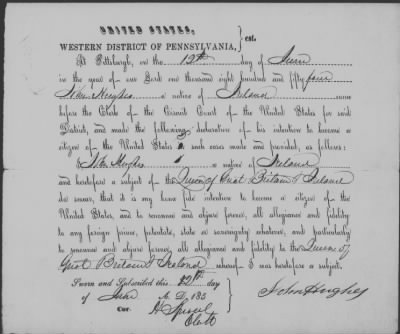 UNITED STATES,
WESTERN DISTRICT OF PENNSYLVANIA, } sct.
At Pittsburgh, on the 12th day of June
in the year of our Lord one thousand eight hundred and fifty four
John Hughes a native of Ireland came
before the Clerk of the Circuit Court of the United States for said
District, and made the following declaration of his intention to become a
citizen of the United States in such cases made and provided, as follows:
I John Hughes a native of Ireland
and heretofore a subject of the Queen of Great Britain & Ireland
do swear, that it is my bona fide intention to become a citizen of the
United States, and to renounce and abjure forever, all allegiance and fidelity
to any foreign prince, potentate, state or sovereignty whatever, and particularly
to renounce and abjure forever all allegiance and fidelity to the Queen of
Great Britain & Ireland whereof I was heretofore a subject.
Sworn and Subscribed this 12th day
of June A. D. 185
Cor. John Hughes
Clk